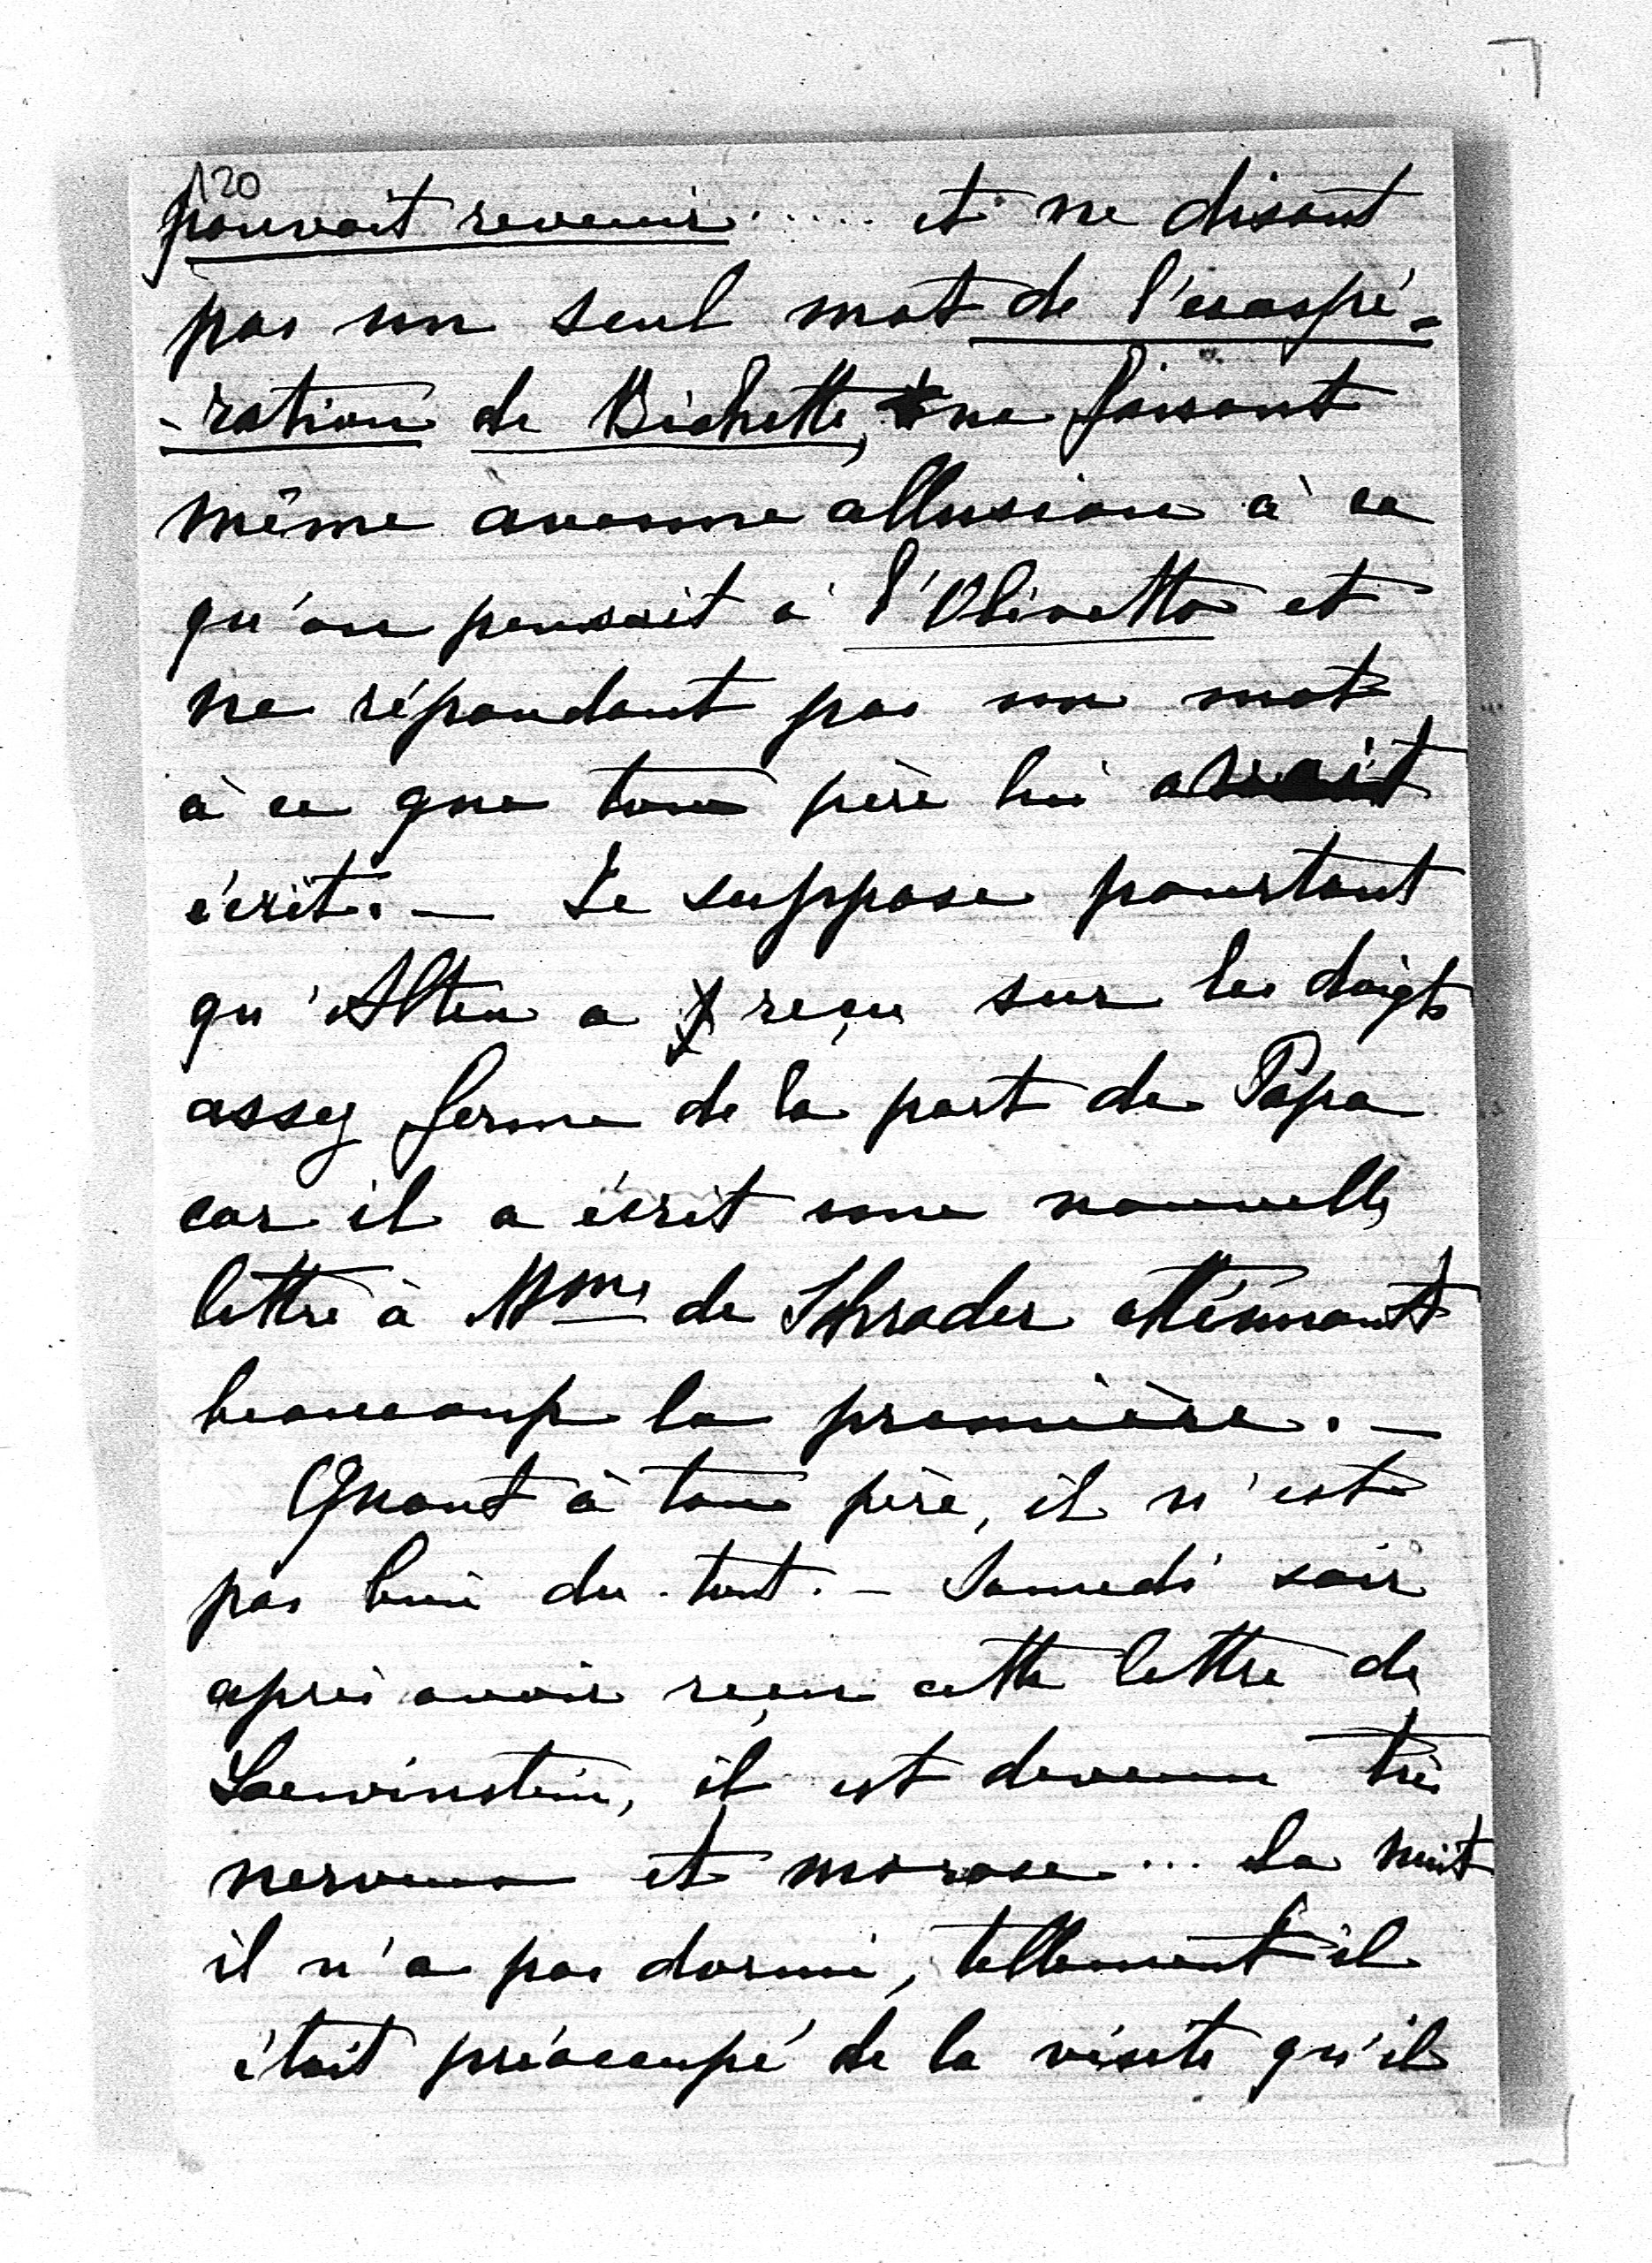 120
pouvait revenir ..... et ne disant
pas un seul mot de l'exaspé-
-ration de Bichette, ne faisant
même aucune allusion à ce
qu'on pensait à l'Olivetto et
ne répondant pas un mot
à ce que ton père lui avait
écrit. — Je suppose pourtant
qu'Alten a reçu sur les doigts
assez ferme de la part de Papa
car il a écrit une nouvelle
lettre à Mme de Schrader atténuant
beaucoup la première. —
Quant à ton père, il n'est
pas bien du tout. — Samedi soir
après avoir reçu cette lettre de
Loewinstein, il est devenu très
nerveux et morose ... La nuit
il n'a pas dormi, tellement il
était préoccupé de la visite qu'il